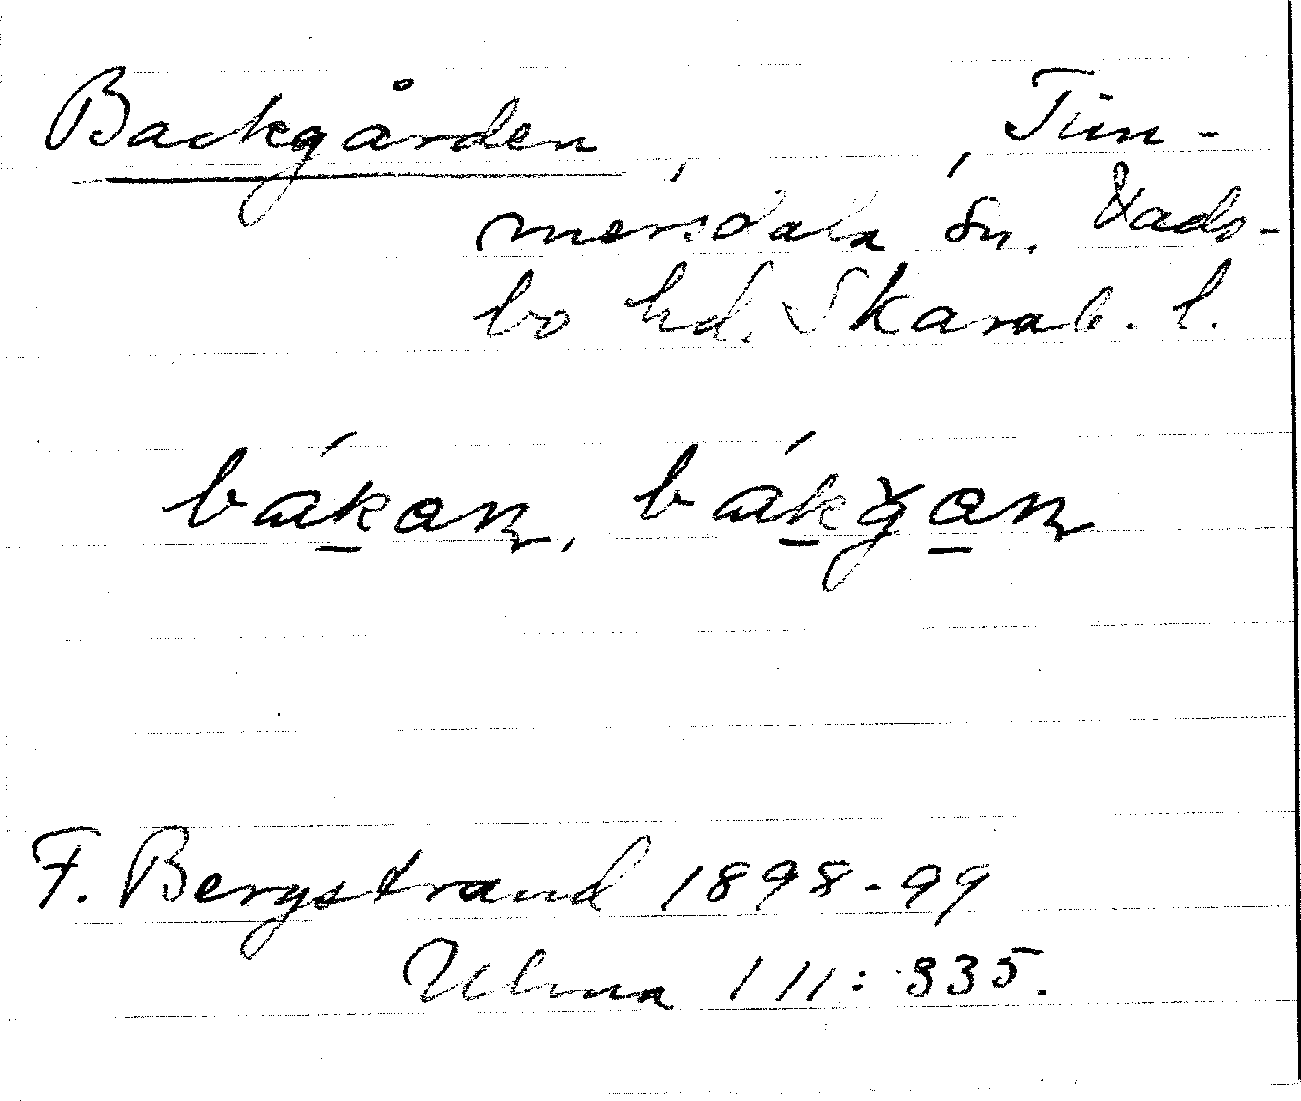 Backgården, , Tim-
mersdala sn. Vads-
bo hd. Skarab. l.
bákan, bákgan
F. Bergstrand 1898-99
Ulma 111:335.